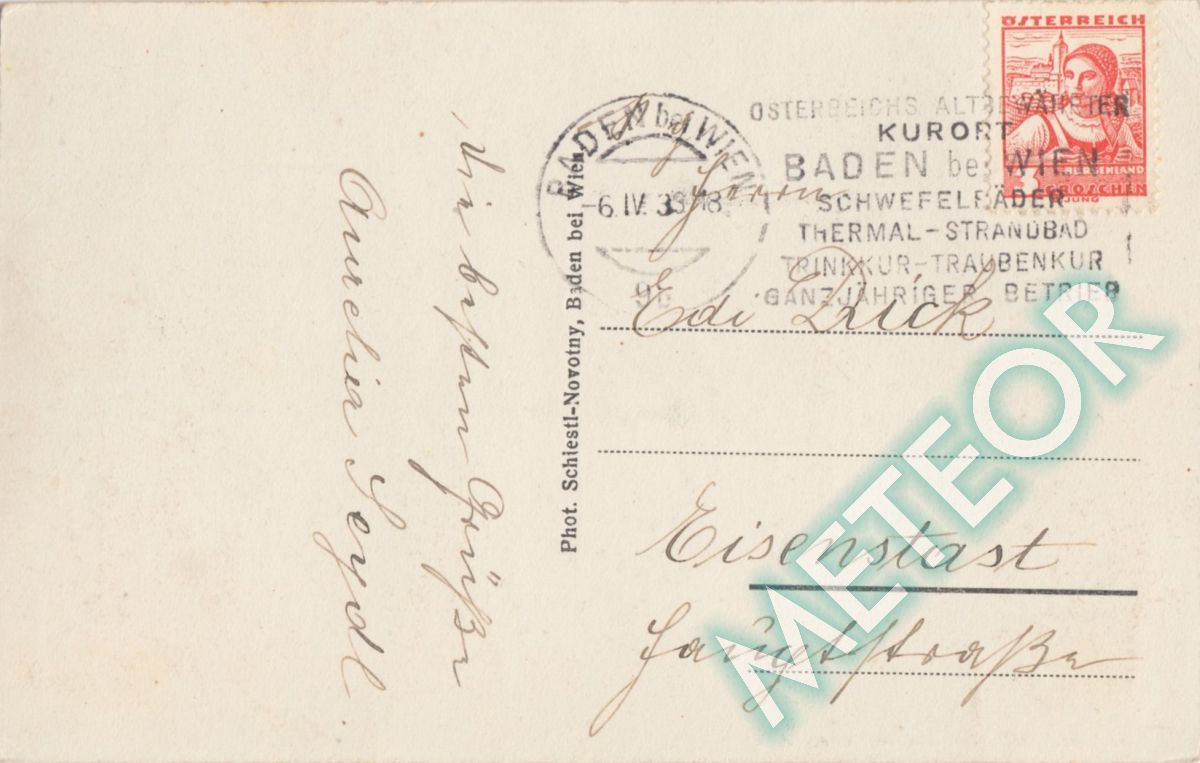 Die besten Grüße
Aurelia Seydl.
Phot. Schiestl-Novotny, Baden bei Wien
BADEN bei WIEN
-6.IV. 18
ÖSTERREICHS ALTBEWÄHRTER
KURORT
BADEN bei WIEN
SCHWEFELBÄDER
THERMAL-STRANDBAD
TRINKKUR-TRAUBENKUR
GANZJÄHRIGER BETRIEB
ÖSTERREICH
BURGENLAND
3 GROSCHEN
JUNG
Herrn
Edi
Eisenstast
Hauptstraße
METEOR